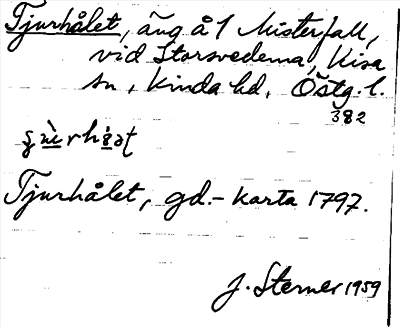 Tjurhålet, äng å 1 Misterfall,
vid Storsvedema, Kisa
sn, Kinda hd, Östg. l.
382
Tjurhålet, gd.- karta 1797.
J. Sterner 1959